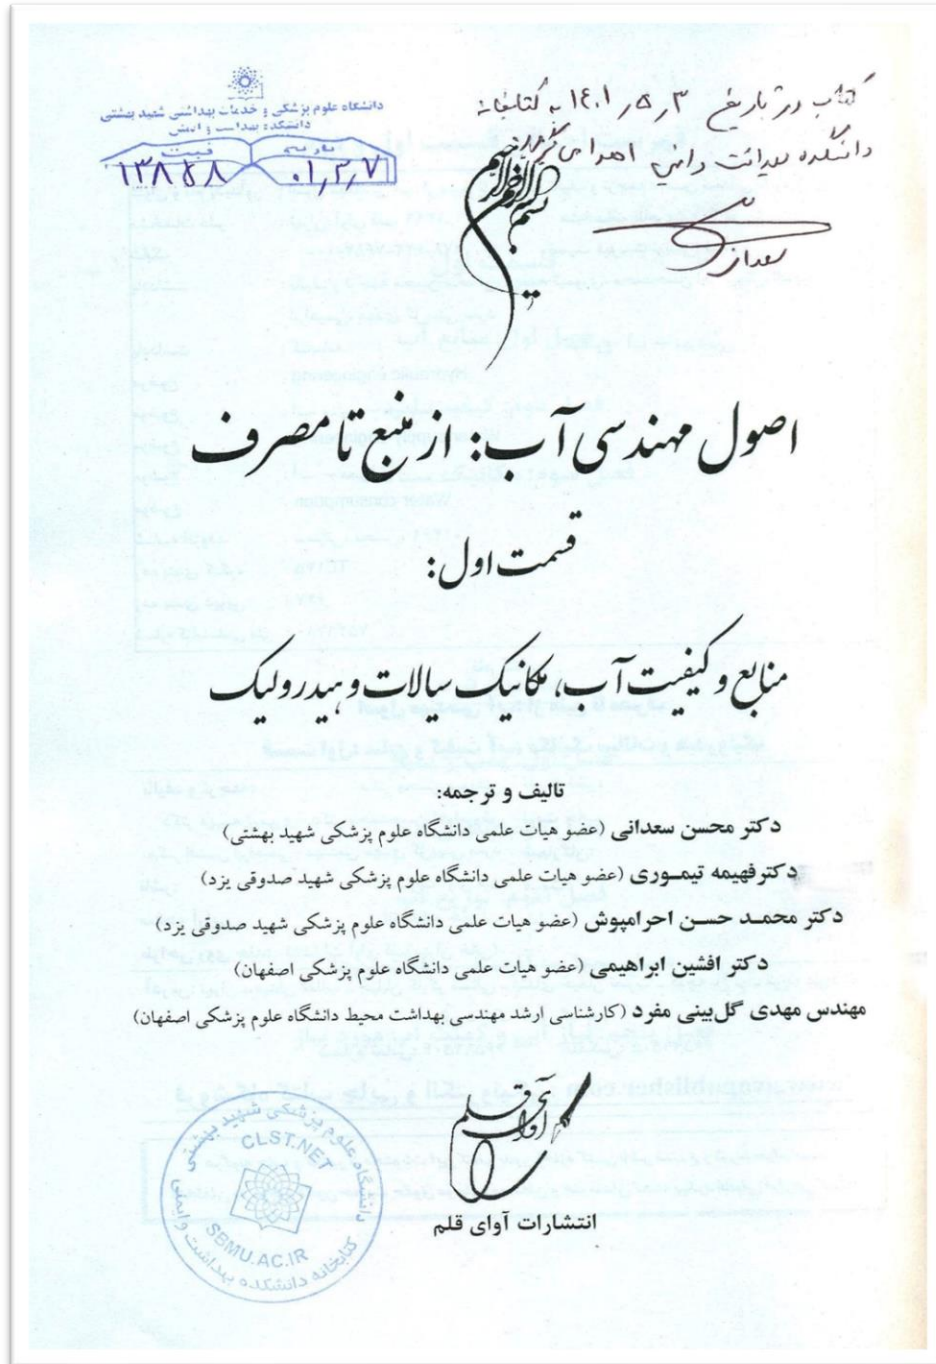 کتاب در تاریخ ۱۴۰۱ ر ۵ ر ۳ به کتابخانه
دانشکده بهداشت و ایمنی اهدا می گردد
سعدانی
دانشگاه علوم پزشکی و خدمات بهداشتی شهید بهشتی
دانشکده بهداشت و ایمنی
تاریخ ثبت
۰۱٫۳٫۷ ۱۳۸۵۸۸
بسم الله الرحمن الرحیم
اصول مهندسی آب: از منبع تا مصرف
قسمت اول:
منابع و کیفیت آب، مکانیک سیالات و هیدرولیک
تالیف و ترجمه:
دکتر محسن سعدانی (عضو هیات علمی دانشگاه علوم پزشکی شهید بهشتی)
دکترفهیمه تیموری (عضو هیات علمی دانشگاه علوم پزشکی شهید صدوقی یزد)
دکتر محمد حسن احرامپوش (عضو هیات علمی دانشگاه علوم پزشکی شهید صدوقی یزد)
دکتر افشین ابراهیمی (عضو هیات علمی دانشگاه علوم پزشکی اصفهان)
مهندس مهدی گل‌بینی مفرد (کارشناسی ارشد مهندسی بهداشت محیط دانشگاه علوم پزشکی اصفهان)
آوای قلم
انتشارات آوای قلم
دانشگاه علوم پزشکی شهید بهشتی
CLST.NET
SBMU.AC.IR
کتابخانه دانشکده بهداشت و ایمنی